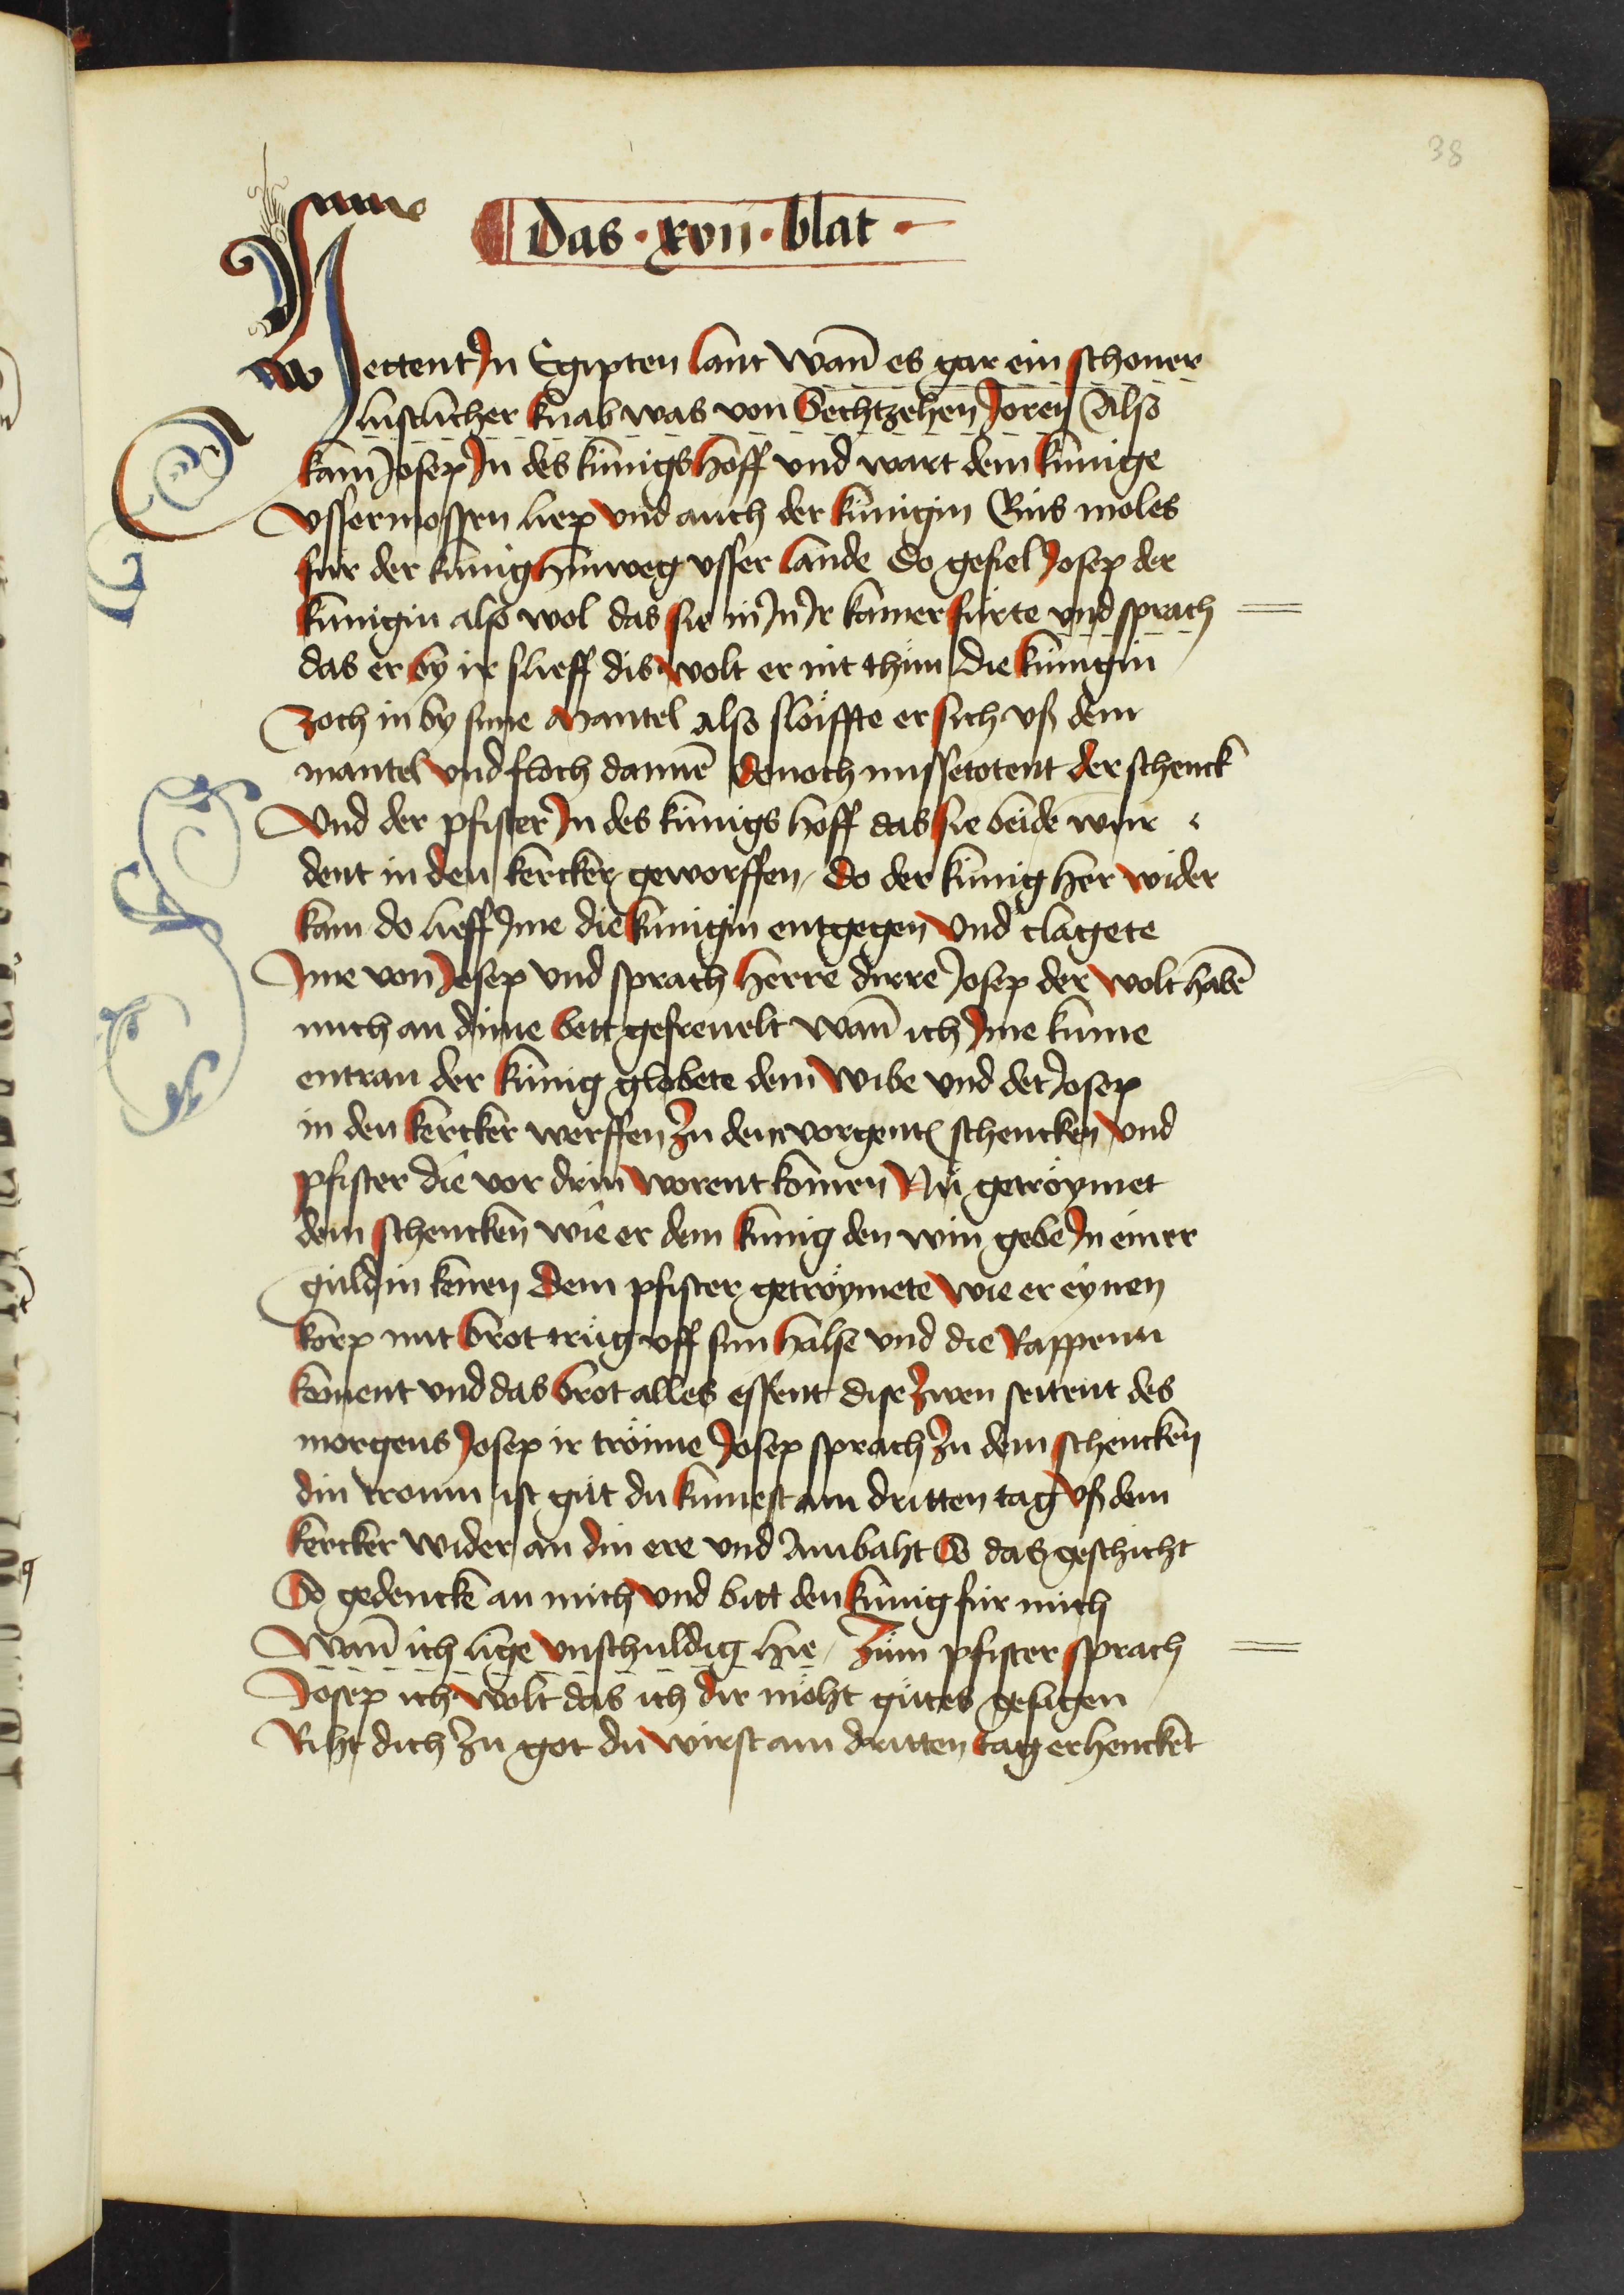 38
Das · xvii · blat ·
ettent Jn Egipten lant Wan̄ es gar ein schoner
lustlicher knab was von Sechtzehen Joren Also
kam Josep Jn des kúnigs hoff vnd wart dem kúnige
Vssermossen liep vnd auch der kúnigin Eins moles
fúr der kúnig hinweg vsser lande Do gefiel Josep der
kúnigin also wol das sie in Jn Jr kamer fúrte vnd sprach
das er by ir slieff dis wolt er nit thuͤn Die kúnigin
Zoch in by sime Mantel also sloiffte er sich vß dem
mantel vnd floch dannē Denoch missetotent der schenck
Vnd der pfister Jn des kúnigs hoff das sie beide wur
dent in den kercker geworffen / Do der kúnig her wider
kam do lieff Jme die kúnigin entgegen Vnd clagete
Jme von Josep vnd sprach Herre dirre Josep der wolt habē
mich an dime bett gefreuelt Wan̄ ich Jme kume
entran der kúnig globete dem wibe vnd det Josep
in den kercker werffen Zu den vorgent schencken Vnd
pfister die vor drin worent komen Nuͦ getröymet
dem schencken wie er dem kúnig den win gebe Jn einer
guldin kenen Dem pfister getröymete Wie er eynen
korp mit brot truͦg vff sim halse vnd die Rappenn
koment vnd das brot alles essent Dise Zwen seitent des
morgens Josep ir tröime Josep sprach Zu dem schencken
din troum ist guͦt du kumest am dritten tag Vß dem
kercker Wider an din ere vnd Ambaht So das geschicht
So gedenck an mich Vnd bitt den kúnig fúr mich
Wan̄ ich lige Vnschuldig hie / Zum pfister sprach
Josep ich wolt das ich dir möht guͦtes gesagen
Riht dich Zu got du wirst am dritten tag erhencket